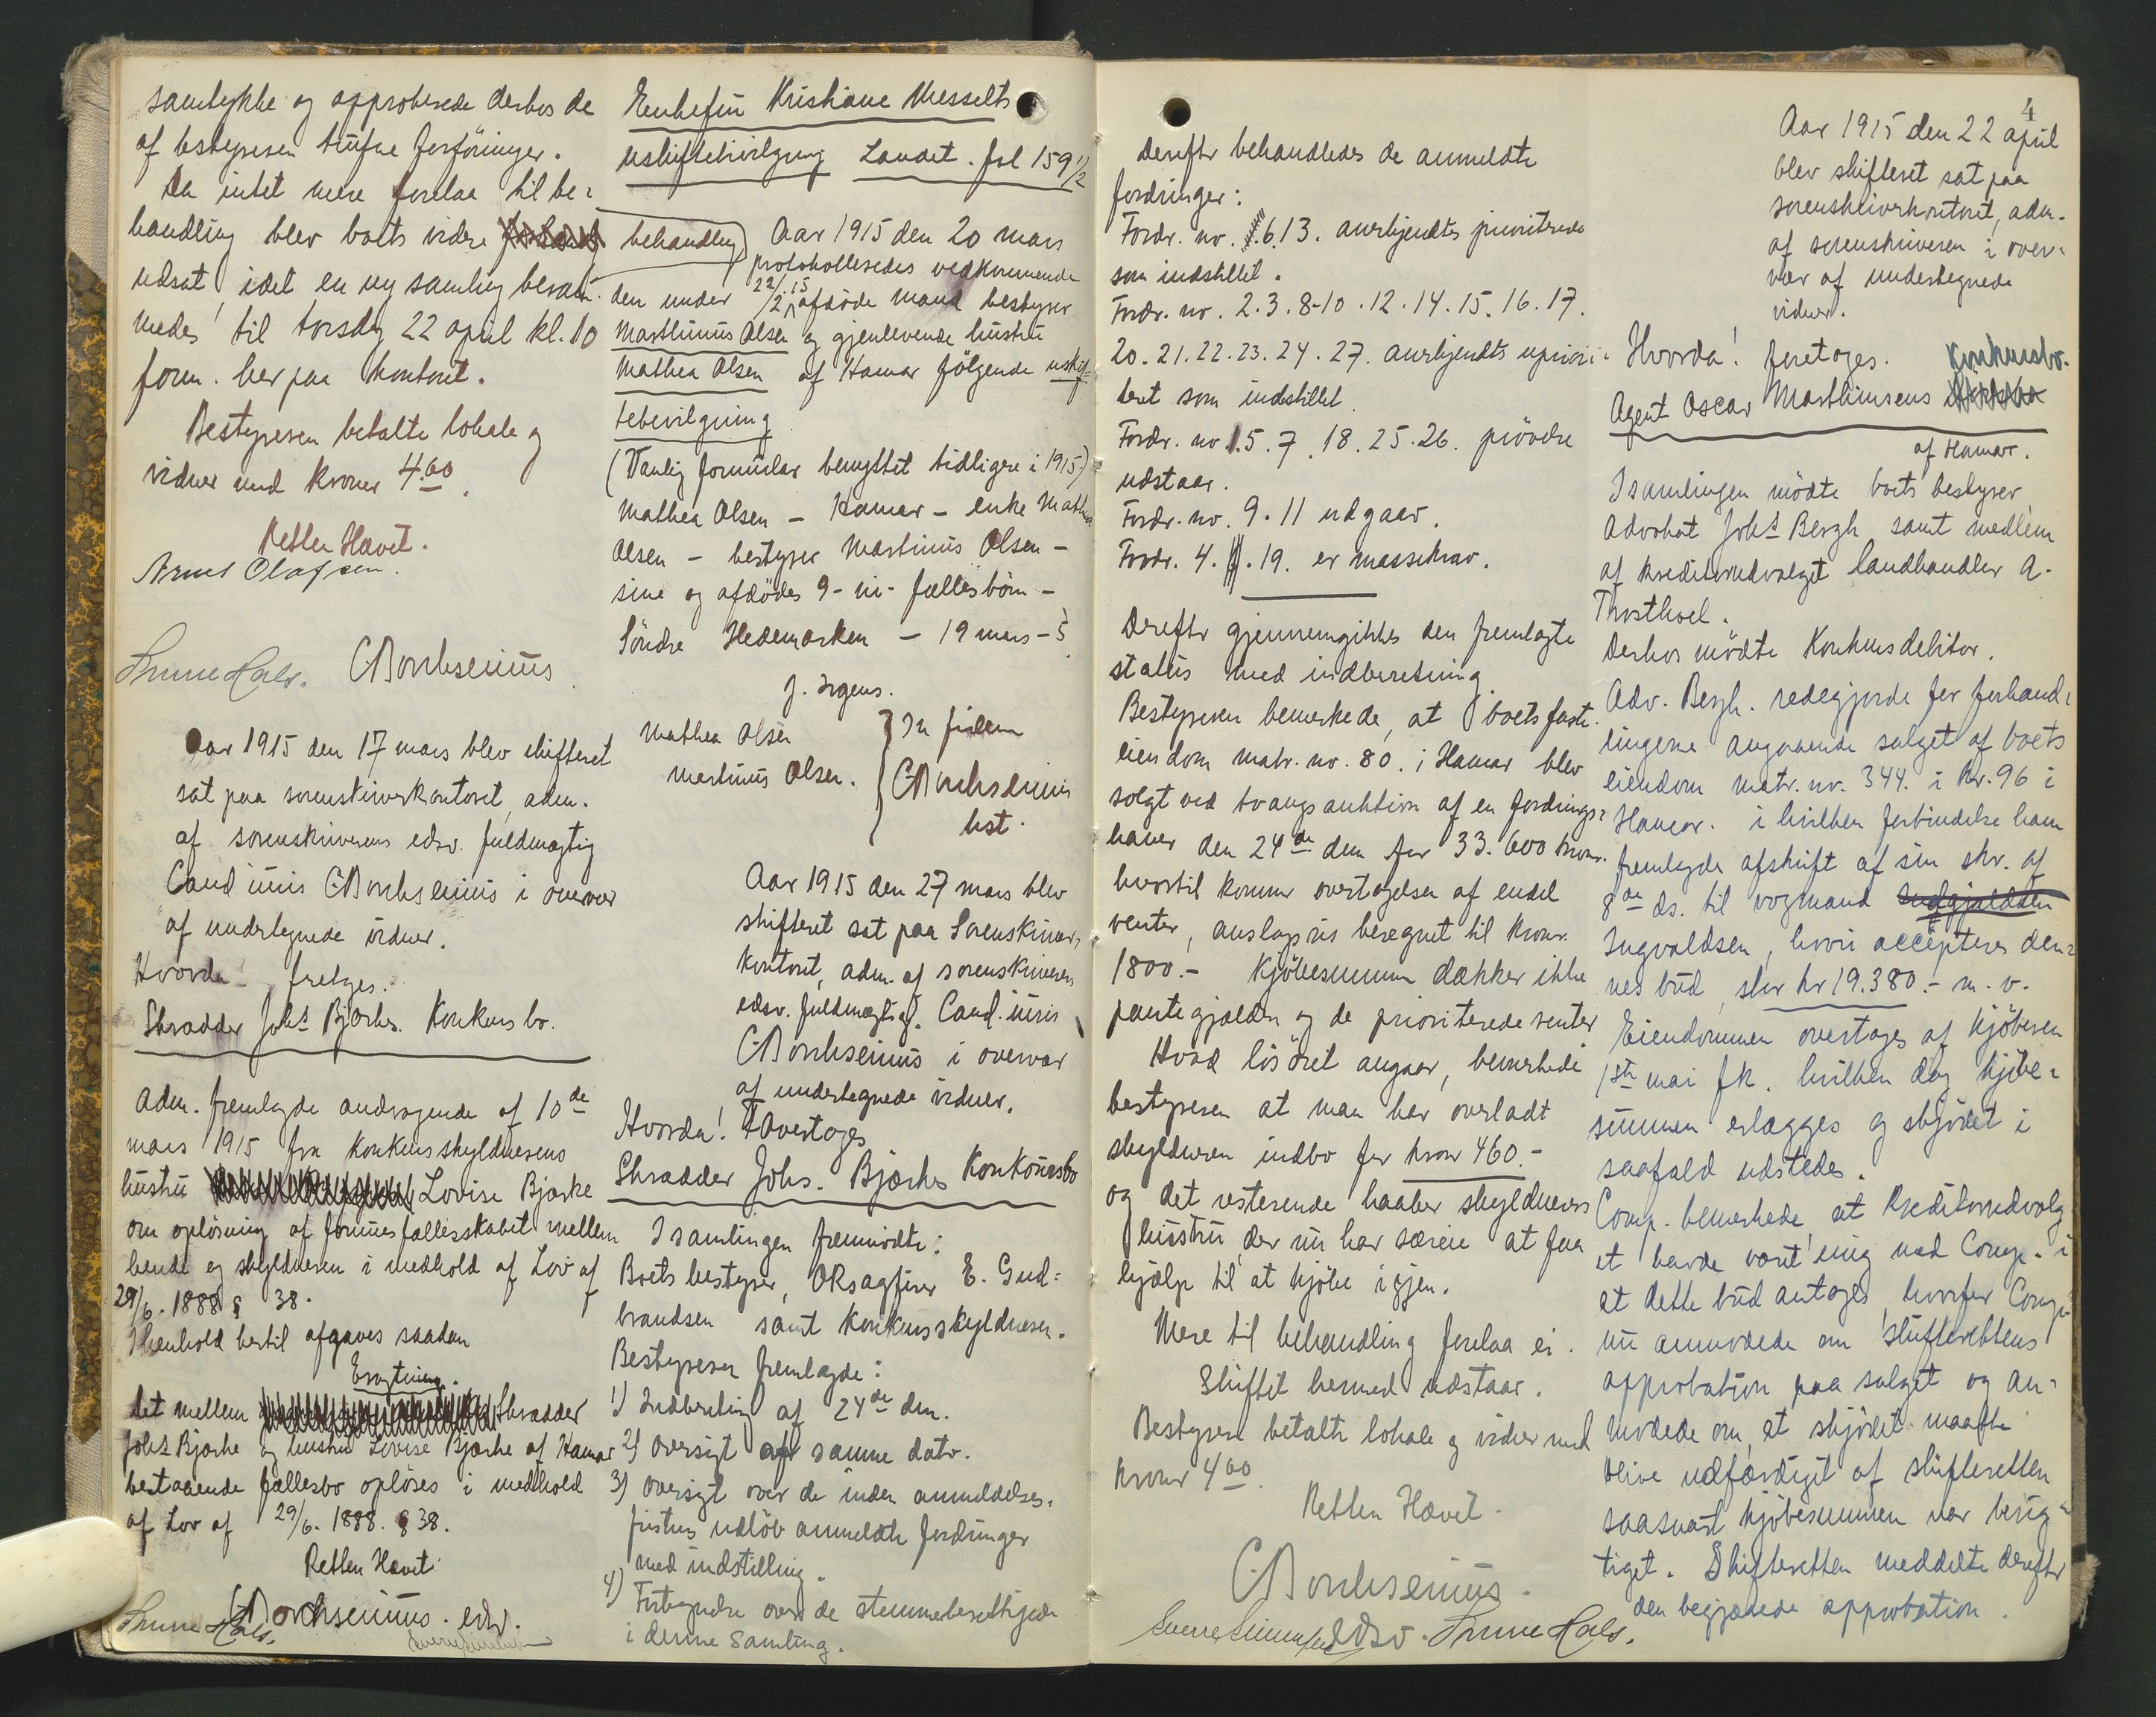 samtykke og approberede derhos de
af bestyreren trufne forföininger.
Da intet mere forelaa til be-
handling blev boets videre behandling
udsat, idet en ny samling beram-
medes til torsdag 22 april kl. 10
form. her paa kontoret.
Bestyreren betalte lokale og
vidner med kroner 4.60.
Retten Hævet.
Arne Olafsen.
CBorchsenius
Aar 1915 den 17 mars blev skifteret
sat paa sorenskriverkontoret, adm.
af sorenskriverens edsv. fuldmægtig
Cand juris CBorchsenius i overvær
af undertegnede vidner.
Hvorda! foretages.
Skrædder Johs Bjørkes. Konkurs bo.
Adm. fremlagde andragende af 10de
mars 1915 fra konkursskyldnerens
hustru Lovise Bjørke
om oplösning af formuesfællesskabet mellem
hende og skyldneren i medhold af Lov af
29/6. 1888 § 38.
I henhold hertil afgaves saadan
Eragtning.
Det mellem Skrædder
Johs Bjørke og hustru Lovise Bjørke af Hamar
bestaaende fællesbo oplöses i medhold
af Lov af 29/6. 1888. § 38.
Retten Hævet
CBorchsenius. edsv.
Enkefru Kristiane Messelts
uskiftebevilgning Landet. fol 159 1/2
Aar 1915 den 20 mars
protokolleredes vedkommende
den under 22/2 15 afdöde mand bestyrer
Marthinius Olsen og gjenlevende hustru
Mathea Olsen af Hamar fölgende uskif-
tebevilgning
(Vanlig formular benyttet tidligere i 1915)
Mathea Olsen – Hamar – enke Mathea
Olsen – bestyrer Martinius Olsen –
sine og afdödes 9 - ni - fællesbörn –
Söndre Hedemarken – 19 mars – 5
J. Irgens.
Mathea Olsen
Martinius Olsen.
In fidem
CBorchsenius
kst.
Aar 1915 den 27 mars blev
skifteret sat paa Sorenskriver-
kontoret, adm. af sorenskriverens
edsv. fuldmægtig. Cand. juris
CBorchsenius i overvær
af undertegnede vidner.
Hvorda! Foretoges
Skrædder Johs. Bjørkes Konkursbo
I samlingen fremmödte:
Boets bestyrer, ORsagförer E. Gud-
brandsen samt konkursskyldneren.
Bestyreren fremlagde:
1) Indberetning af 24de dm.
2) Oversigt af samme dato.
3) Oversigt over de inden anmeldelses-
fristens udlöb anmeldte fordringer
med indstilling.
4) Fortegnelse over de stemmeberettigede
i denne Samling.
4
Derefter behandledes de anmeldte
fordringer:
Fordr. no. 6.13. anerkjendtes prioriterede
som indstillet.
Fordr. no. 2.3.8-10.12.14.15.16.17.
20.21.22.23.24.27. anerkjendtes upriori-
teret som indstillet.
Fordr. no 1.5.7.18.25.26. prövelse
udstaar.
Fordr. no. 9.11 udgaar.
Fordr. 4. 19. er massekrav.
Derefter gjennemgikkes den fremlagte
status med indberetning.
Bestyreren bemerkede, at boets faste
eiendom matr. no. 80. i Hamar blev
solgt ved tvangsauktion af en fordrings-
haver den 24de dm for 33.600 kroner.
hvortil kommer overtagelsen af endel
renter, anslagsvis beregnet til kroner
1800.- Kjöbesummen dækker ikke
pantegjælden og de prioriterede renter
Hvad lösöret angaar, bemerkede
bestyreren at man har overladt
skyldneren indbo for kroner 460.-
og det resterende haaber skyldnerens
husstru, der nu har særeie at faa
hjælp til at kjöbe igjen.
Mere til behandling forelaa ei.
Skiftet hermed udstaar.
Bestyreren betalte lokale og vidner med
kroner 4 60.
Retten Hævet.
CBorchsenius.
edsv.
Aar 1915 den 22 april
blev skifteret sat paa
sorenskriverkontoret, adm.
af sorenskriveren i over-
vær af undertegnede
vidner.
Hvorda! foretoges.
Agent Oscar Marthinsens Konkursbo.
af Hamar.
I samlingen mödte boets bestyrer
Advokat Johs Bergh samt medlem
af kreditorudvalget landhandler A.
Derhos mödte Konkursdebitor.
Adv. Bergh. redegjorde for forhand-
lingerne angaaende salget af boets
eiendom matr. nr. 344. i kv. 96 i
Hamar. i hvilken forbindelse han
fremlagde afskrift af sin skr. af
8de ds. til vognmand
Ingvaldsen, hvori accepteres den-
nes bud, stor kr 19.380.- m.v.
Eiendommen overtages af kjöberen
1ste mai fk. hvilken dag kjöbe-
summen erlægges og skjödet i
saafald udstedes.
Comp. bemerkede, at Kreditorudvalg-
et havde været enig med Comp. i
at dette bud antages, hvorfor Comp.
nu anmodede om skifterettens
approbation paa salget og an-
modede om, at skjödet maatte
blive udfærdiget af skifteretten
saasnart kjöbesummen var berig-
tiget. Skifteretten meddelte derefter
den begjærede approbation.